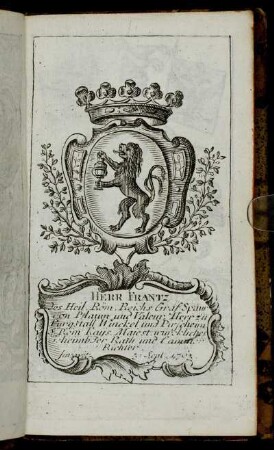 HERR FRANTZ
des Heil. Röm. Reichs Graf Spaur
von Pflaum und Valeur, Herr zu
Burgstall Winckel und
Röm. Kays. Majest. würckliche
Rath und Camm.
Richter
Sept.